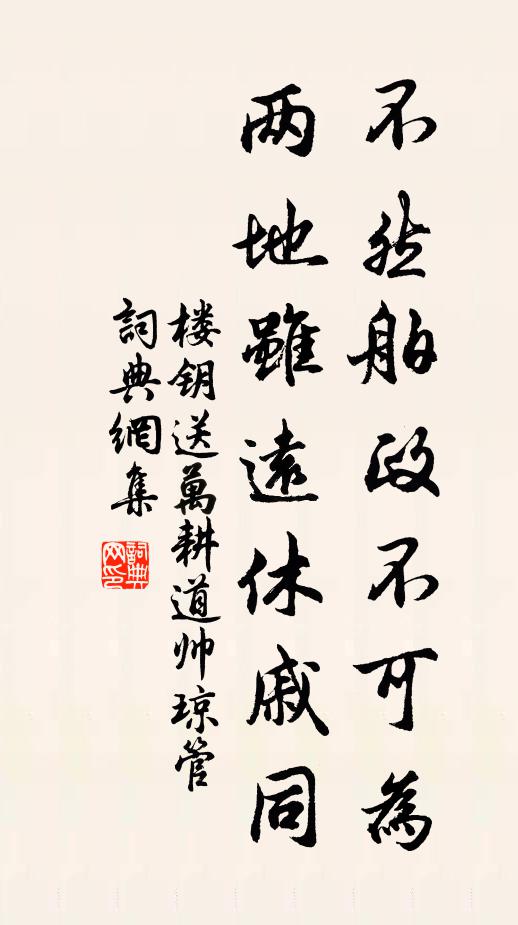 不然舶政不可為
两地雖遠休戚同
楼钥送萬耕道帅琼管
詞典網集
詞典
网印